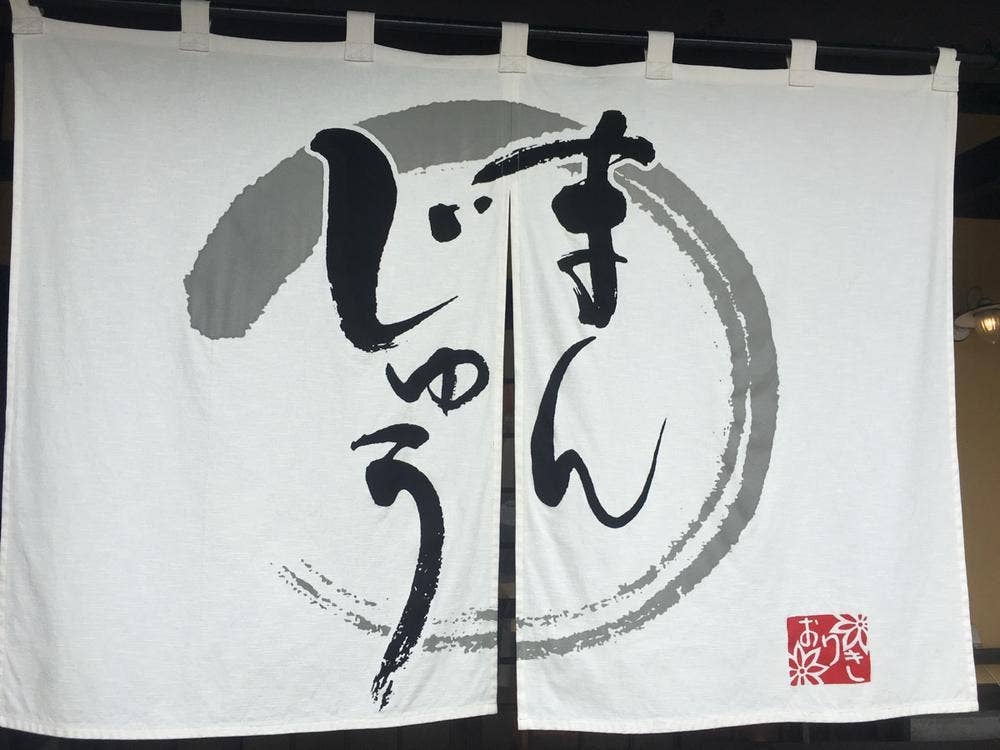 まん
じゅう
おりきし